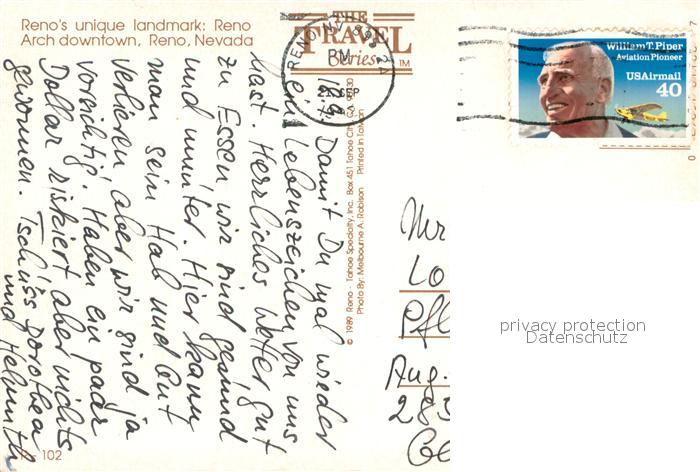 Reno's unique landmark: Reno
Arch downtown, Reno, Nevada
THE
TRAVEL
Series™
RENO NV 895
PM
SEP
William T. Piper
Aviation Pioneer
USAirmail
40
Damit Du mal wieder
ein Lebenszeichen von uns
hast. Herrliches Wetter gut
zu Essen wir sind gesund
und munter. Hier kann
man sein Hab und Gut
verlieren aber wir sind ja
vorsichtig. Haben ein paar
Dollar riskiert aber nichts
gewonnen. Tschüss Dorothea
und Helmuth
© 1989 Reno - Tahoe Specialty, Inc. Box 451 Tahoe City, CA
Photo By: Melbourne A. Robison Printed in Taiwan
Mr
Lo
Pfl
Aug.
283
Ge
privacy protection
Datenschutz
102